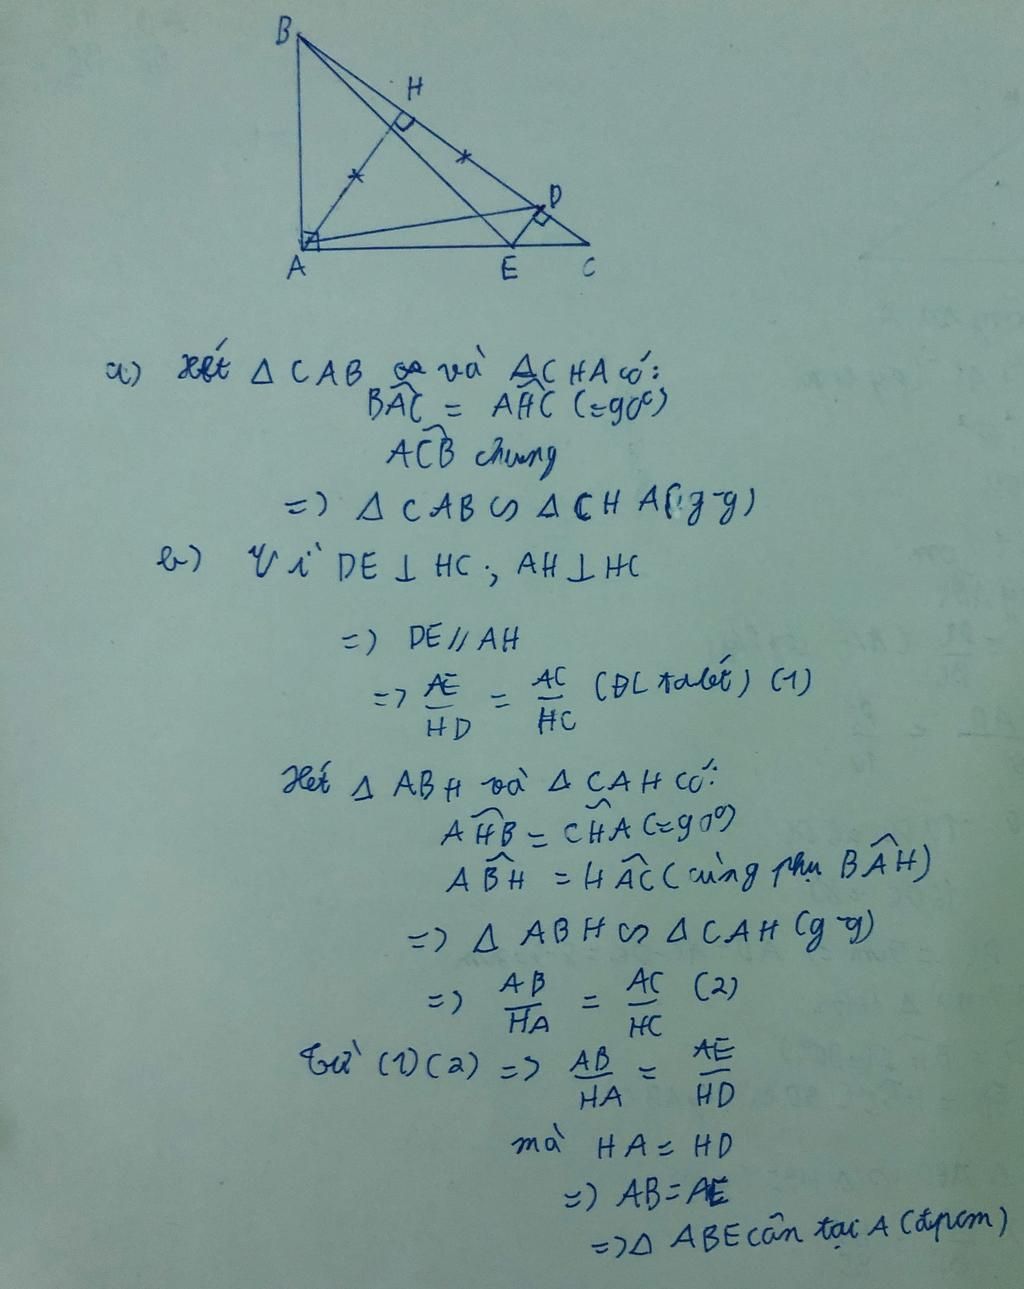 B
H
D
A
E
C
a) Xét Δ CAB và ΔCHA có:
BÂC = AĤC (=90°)
AĈB chung
=> Δ CAB ∽ Δ CHA (g-g)
b) Vì DE ⊥ HC ; AH ⊥ HC
=> DE // AH
=> AE/HD = AC/HC (ĐL talét) (1)
Xét Δ ABH và Δ CAH có:
AĤB = CĤA (=90°)
AB̂H = HÂC (cùng phụ BÂH)
=> Δ ABH ∽ Δ CAH (g-g)
=> AB/HA = AC/HC (2)
Từ (1) (2) => AB/HA = AE/HD
mà HA = HD
=> AB = AE
=> Δ ABE cân tại A (đpcm)